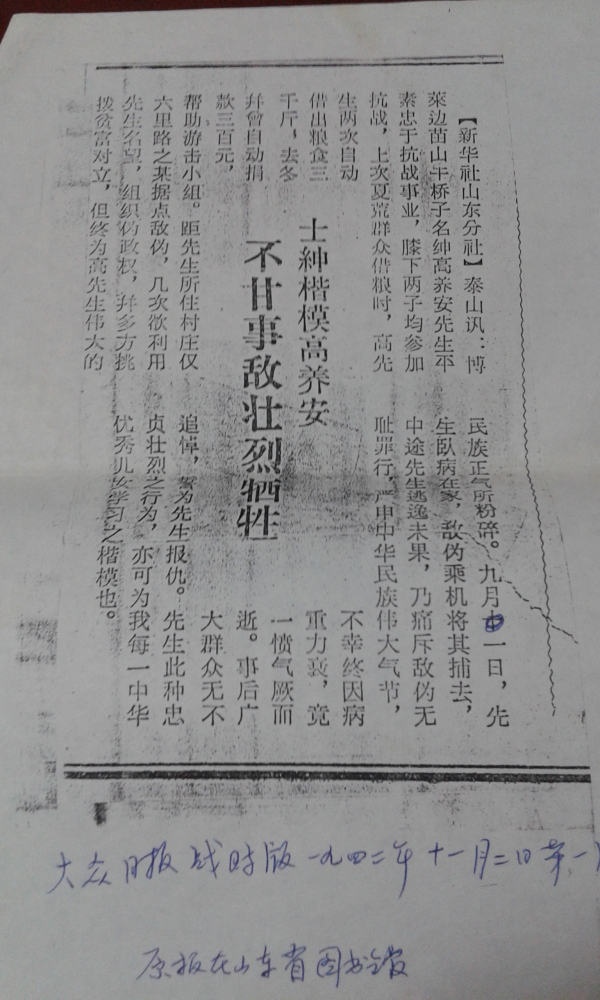 士绅楷模高养安
不甘事敌壮烈牺牲
【新华社山东分社】泰山讯:博
莱边苗山桥子名绅高养安先生平
素忠于抗战事业,膝下两子均参加
抗战,上次夏荒群众借粮时,高先
生两次自动
借出粮食三
千斤,去冬
并曾自动捐
款三百元,
帮助游击小组。距先生所住村庄仅
六里路之某据点敌伪,几次欲利用
先生名望,组织伪政权,并多方挑
拨贫富对立,但终为高先生伟大的
民族正气所粉碎。九月一日,先
生卧病在家,敌伪乘机将其捕去,
中途先生逃逸未果,乃痛斥敌伪无
耻罪行,严申中华民族伟大气节,
不幸终因病
重力衰,竟
一愤气厥而
逝。事后广
大群众无不
追悼,誓为先生报仇。先生此种忠
贞壮烈之行为,亦可为我每一中华
优秀儿女学习之楷模也。
大众日报战时版一九四二年十一月二日第一
原板在山东省图书馆